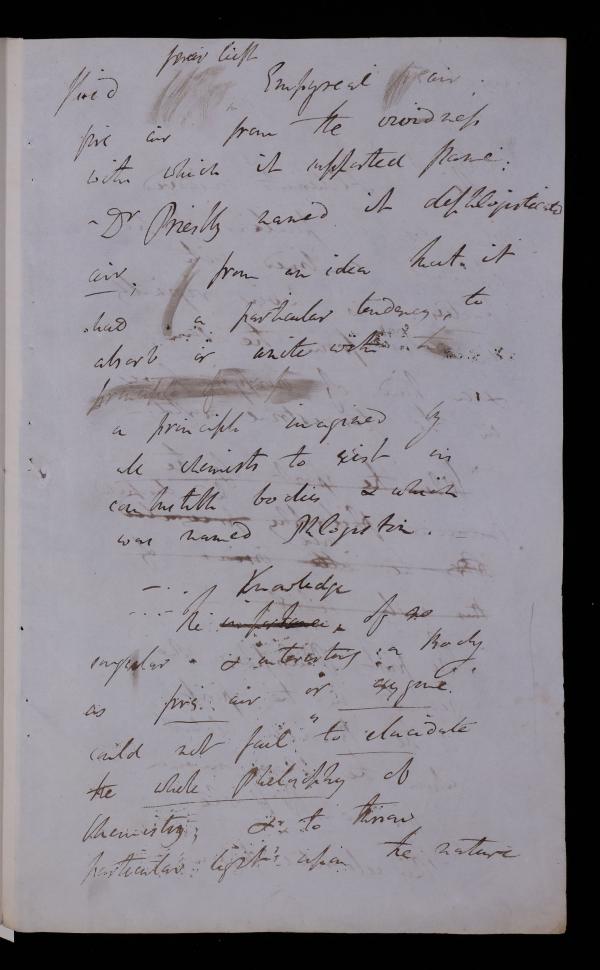 fixed Empyreal air.
fire air from the vividness
with which it supported flame;
- Dr Priestly named it dephlogisticated
air, from an idea that it
had a particular tendency to
absorb or unite with
principle
a principle imagined by
all chemists to exist in
combustible bodies & which
was named Phlogiston.
Knowledge
The importance of so
singular & interesting a Body
as fire air or oxygene.
could not fail to elucidate
the whole Philosophy of
Chemistry; & to throw
particular lights upon the nature